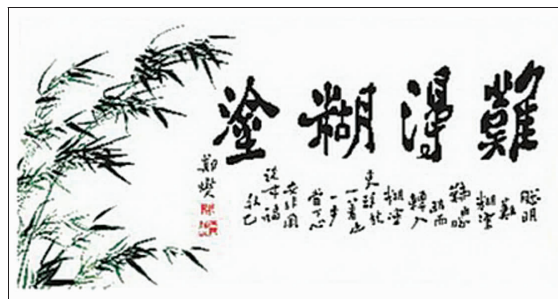 難得糊塗
聰明
難
糊塗
難由聰
明而
轉入
糊塗
更難放
一著退
一步
當下心
安非圖
後來福
報也
鄭燮